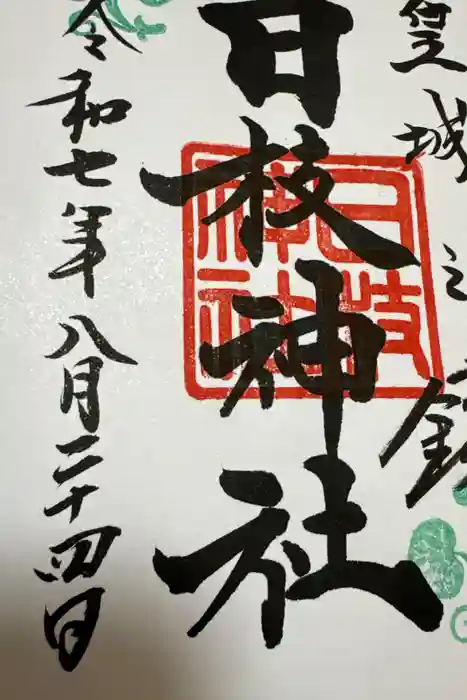 皇城之鎮
日枝神社
日枝神社
令和七年八月二十四日